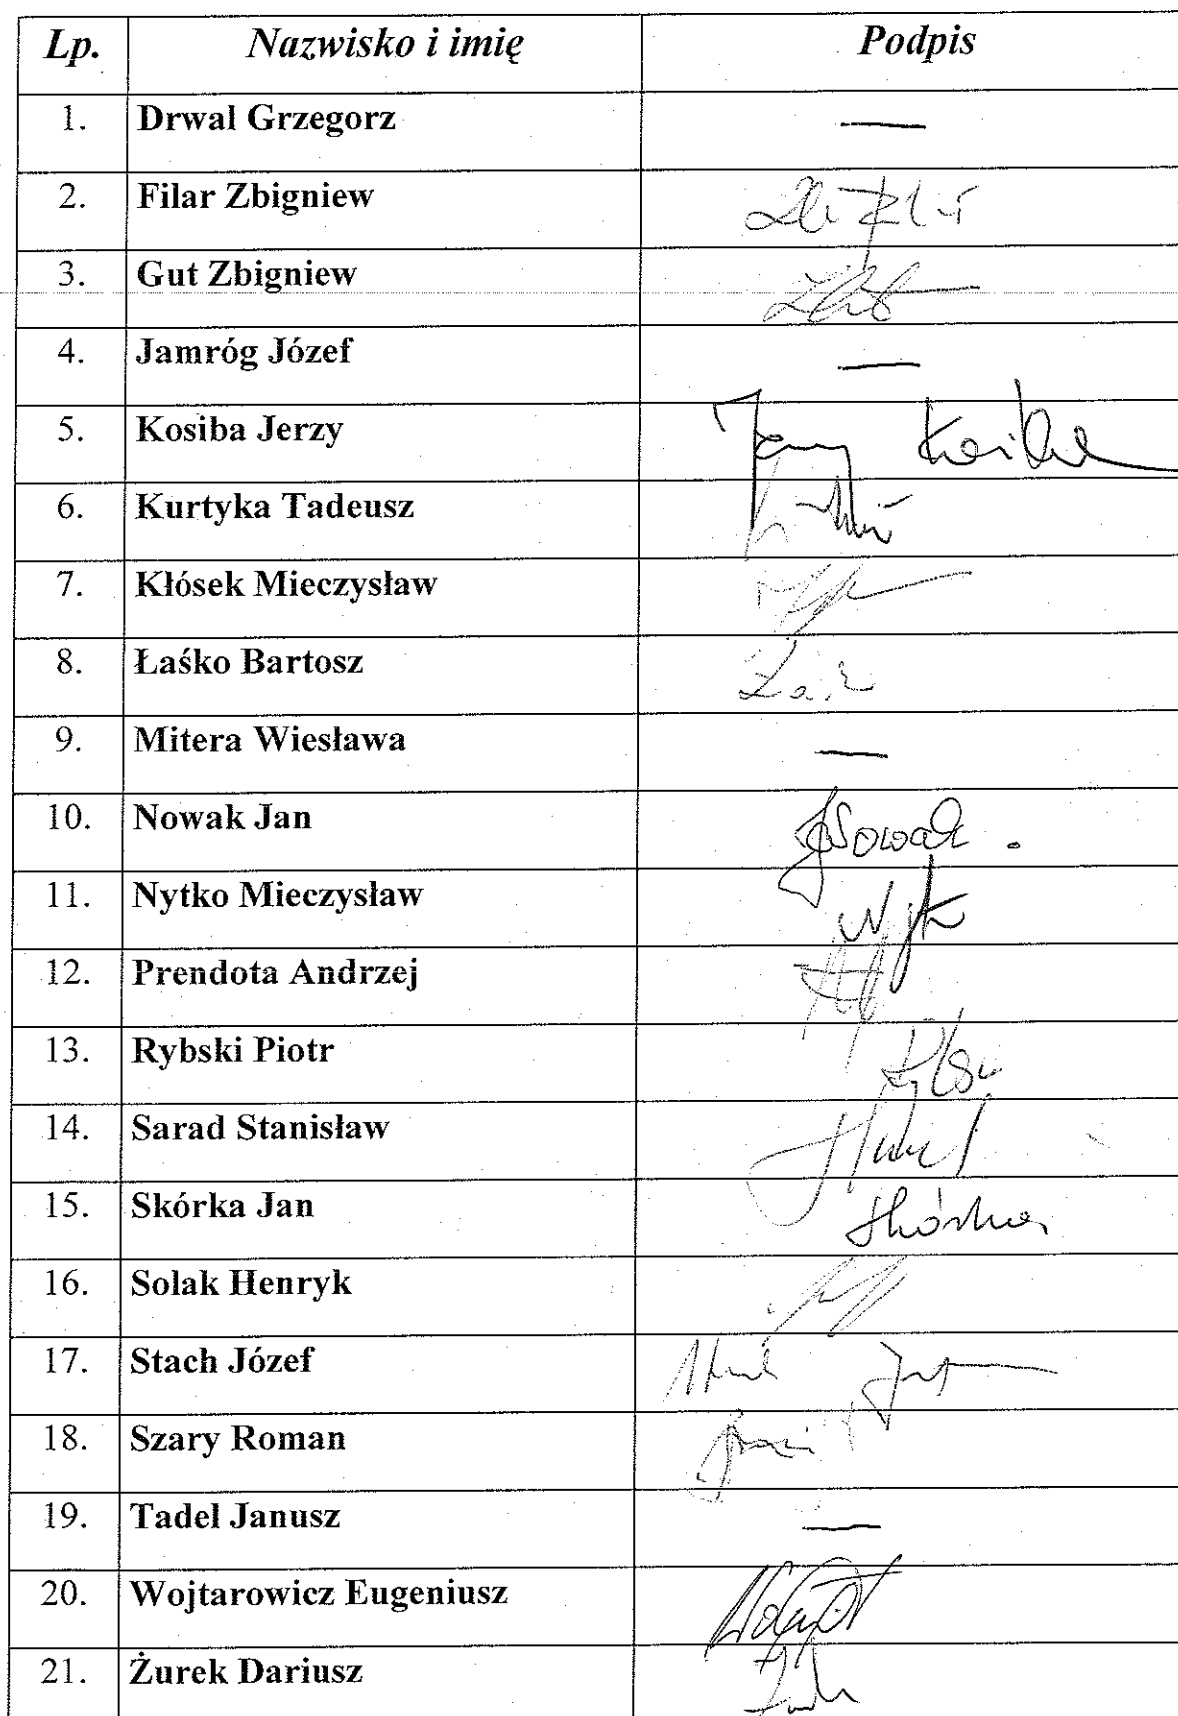 Lp. Nazwisko i imię Podpis
1. Drwal Grzegorz —
2. Filar Zbigniew
3. Gut Zbigniew
4. Jamróg Józef —
5. Kosiba Jerzy Jerzy Kosiba
6. Kurtyka Tadeusz
7. Kłósek Mieczysław
8. Łaśko Bartosz
9. Mitera Wiesława —
10. Nowak Jan JNowak.
11. Nytko Mieczysław
12. Prendota Andrzej
13. Rybski Piotr
14. Sarad Stanisław
15. Skórka Jan Skórka
16. Solak Henryk
17. Stach Józef
18. Szary Roman
19. Tadel Janusz —
20. Wojtarowicz Eugeniusz
21. Żurek Dariusz